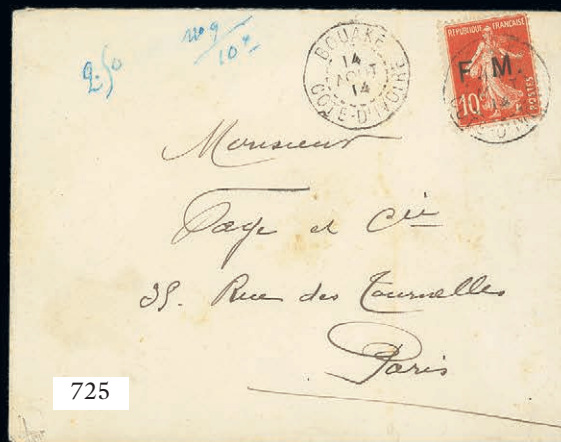 2.50
n° 9
10 x
BOUAKE
14
AOUT
14
COTE-D'IVOIRE
REPUBLIQUE FRANÇAISE
F. M.
10
POSTES
Monsieur
Faye et Cie
35. Rue des Tournelles
Paris
725